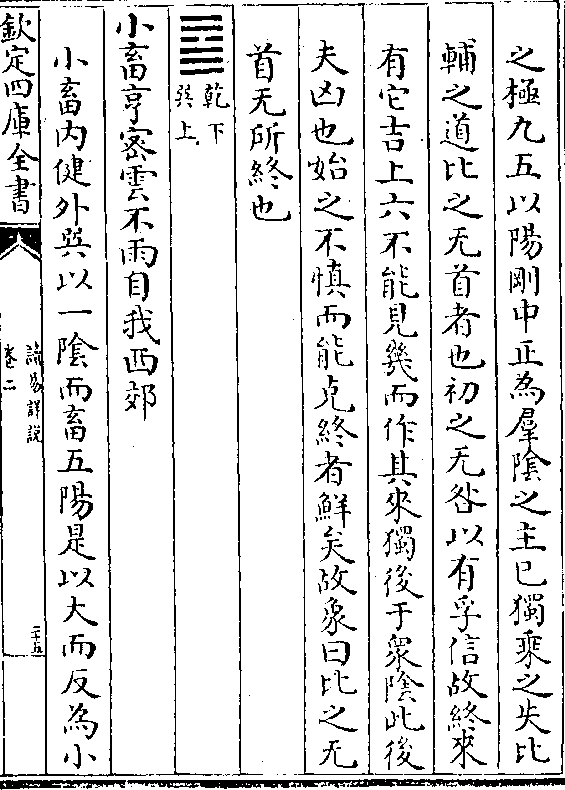 之極九五以陽剛中正為羣隂之主已獨乘之失比
輔之道比之无首者也初之无咎以有孚信故終來
有它吉上六不能見幾而作其來獨後于衆隂此後
夫凶也始之不慎而能克終者鮮矣故象曰比之无
首无所終也
䷈乾下
巽上
小畜亨密雲不雨自我西郊
小畜内健外巽以一隂而畜五陽是以大而反為小
欽定四庫全書
讀易詳說
卷二
二十五